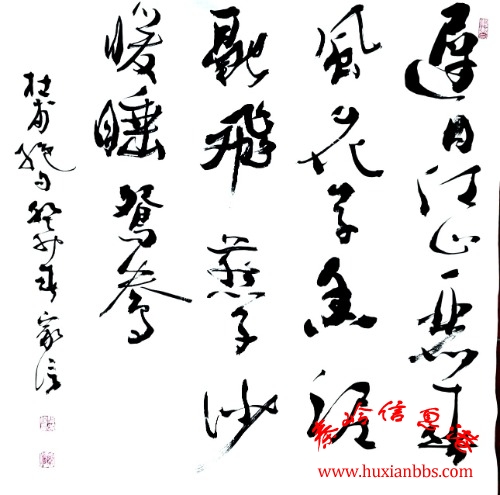 遲日江山麗春
風花草香泥
融飛燕子沙
暖睡鴛鴦
杜甫絕句癸卯春家信
www.huxianbbs.com